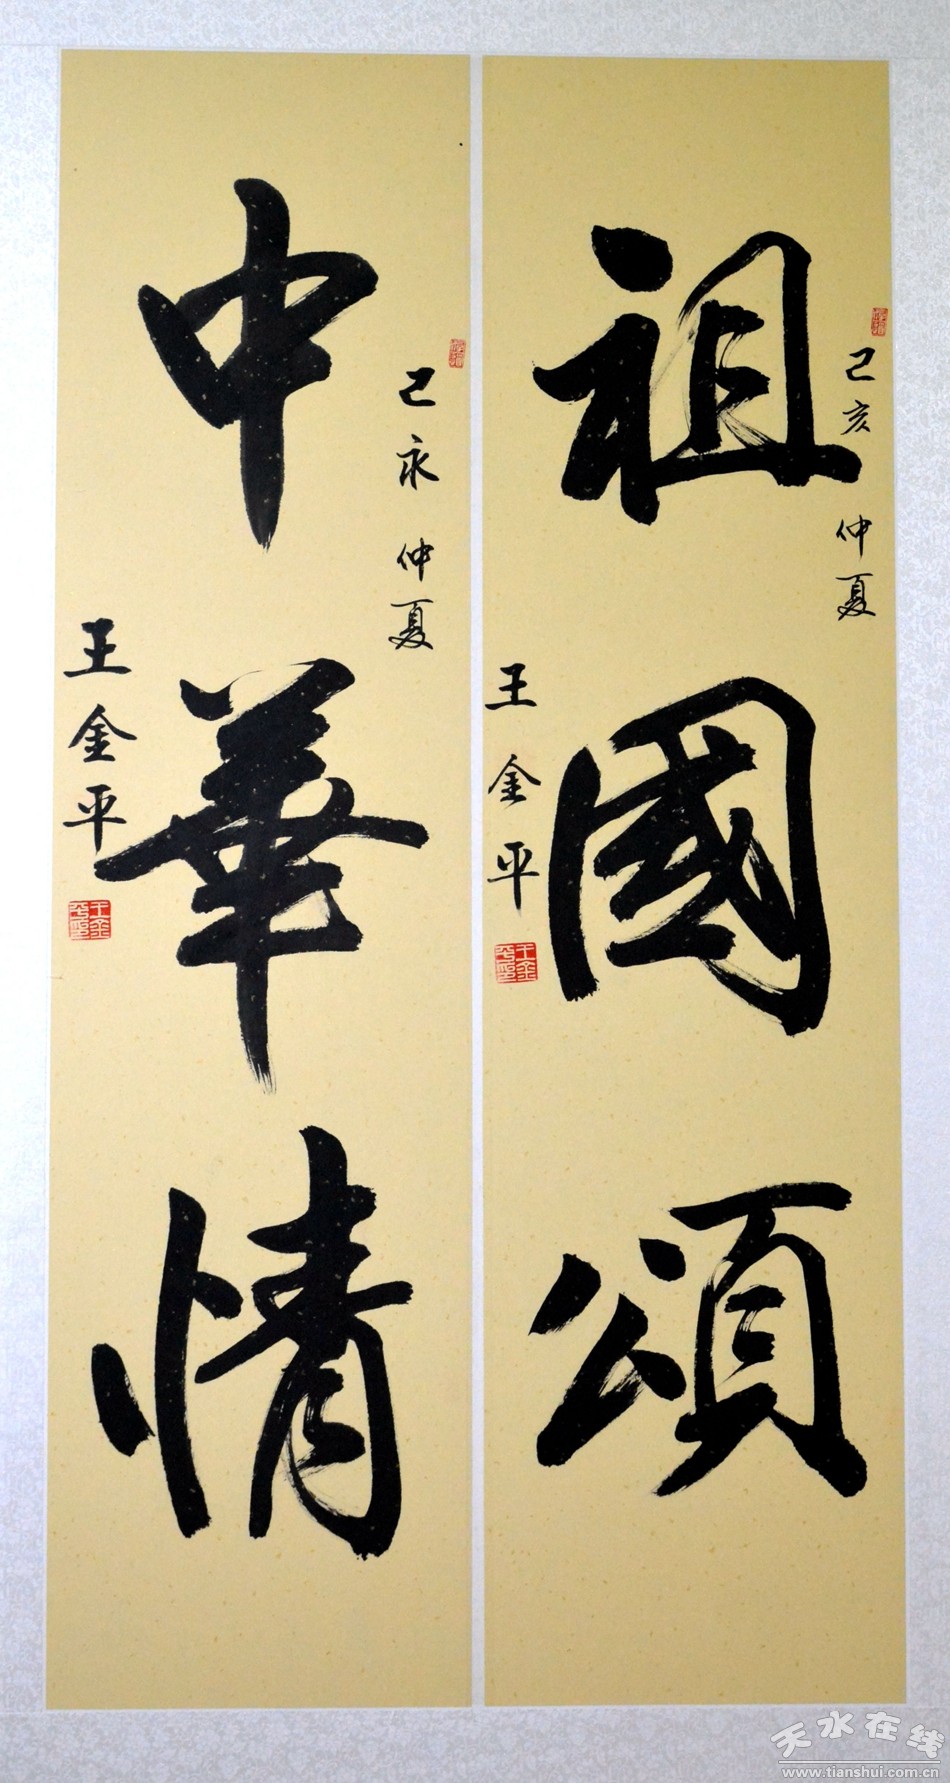 祖國頌
己亥 仲夏
王金平
中華情
己亥 仲夏
王金平
天水在线
www.tianshui.com.cn